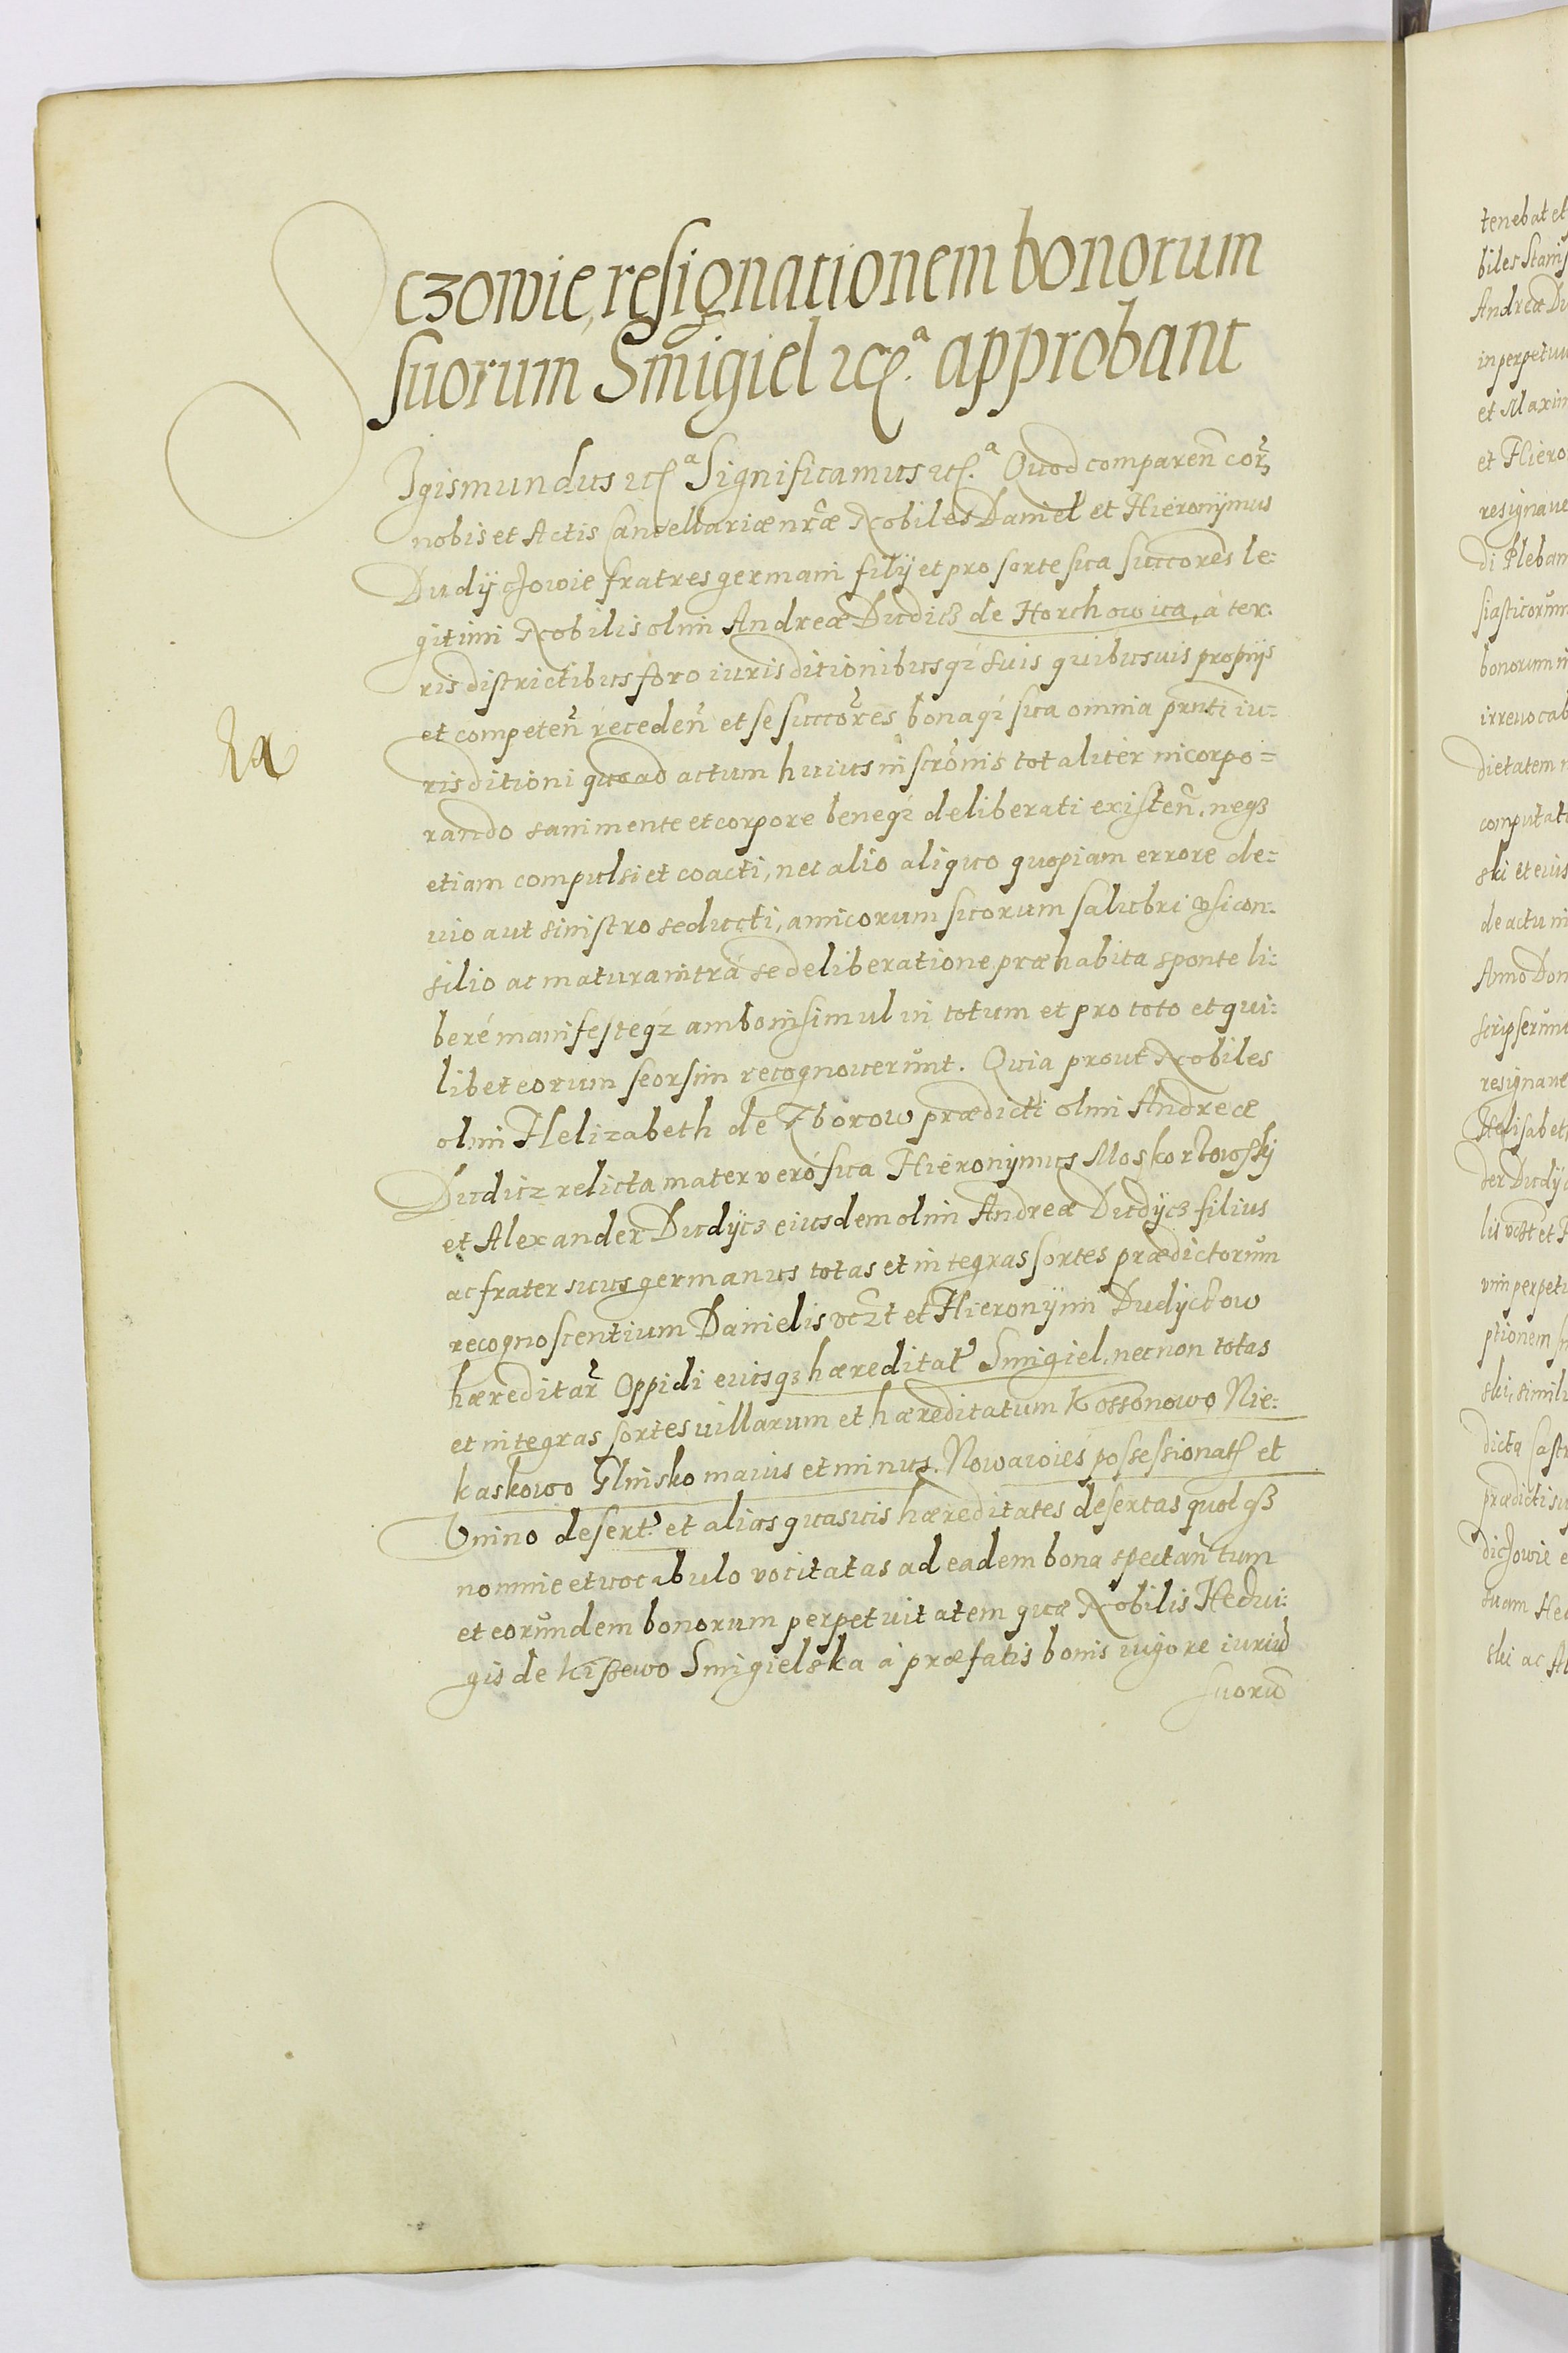 czowie, resignationem bonorum
suorum Smigiel etc.ª approbant
Sigismundus etc.ª Significamus etc.ª Quod comparen̄ cor̄
nobis et Actis Cancellariæ nr̄æ Nobiles Daniel et Hieronÿmus
Dudÿczowie fratres germani filÿ et pro sorte sua succores le-
gitimi Nobilis olim Andreæ Dudicz de Horchowica, à ter-
ris districtibus foro iurisditionibusq́ suis quibusuis proprÿs
et competen̄ receden̄ et se succōres bonaq́ sua omnia pr̄nti iu-
risditioni quoad actum huius inscrōnis totaliter incorpo=
rando sani mente et corpore beneq́ deliberati existen̄. neqз
etiam compulsi et coacti, nec alio aliquo quopiam errore de-
uio aut sinistro seducti, amicorum suorum salubri vsi con-
silio ac matura intrà se deliberatione præhabita sponte li-
beré manifesteq́ ambo insimul in totum et pro toto et qui-
libet eorum seorsim recognouerunt. Quia prout Nobiles
olim Helizabeth de Zborow prædicti olim Andreæ
Dudicz relicta mater veró sua Hieronÿmus Moskorzowskÿ
et Alexander Dudÿcz eiusdem olim Andreæ Dudÿcz filius
ac frater suus germanus totas et integras sortes prædictorum
recognoscentium Danielis vczt et Hieronÿmi Dudÿczow
hæreditar̄ Oppidi eiusqз hæreditat̄ Smigiel. necnon totas
et integras sortes villarum et hæreditatum Kossonowo Nie-
kaskowo Glinsko maius et minus. Nowawies possessionat̄ et
Vnino desert̄. et alias quasuis hæreditates desertas quolqз
nomine et vocabulo vocitatas ad eadem bona spectan̄ tum
et eorundem bonorum perpetuitatem quæ Nobilis Hedui-
gis de Kissewo Smigielska á præfatis bonis uigore iuriū
suorū
tenebat et
biles Stanis
Andreæ Du
in perpetuu
et Maxim
et Hiero
resignaue
di Pleban
siasticorum
bonorum
irreuocab
dietatem
computat
ski et eius
de actu
Anno Dom
scripserunt
resignaue
Helisabet
der Dudÿc
lis vczt et
vim perpetu
ptionem
ski, simil
dicta Castr
prædicti
diczowie e
tuam Hed
ski ac Al